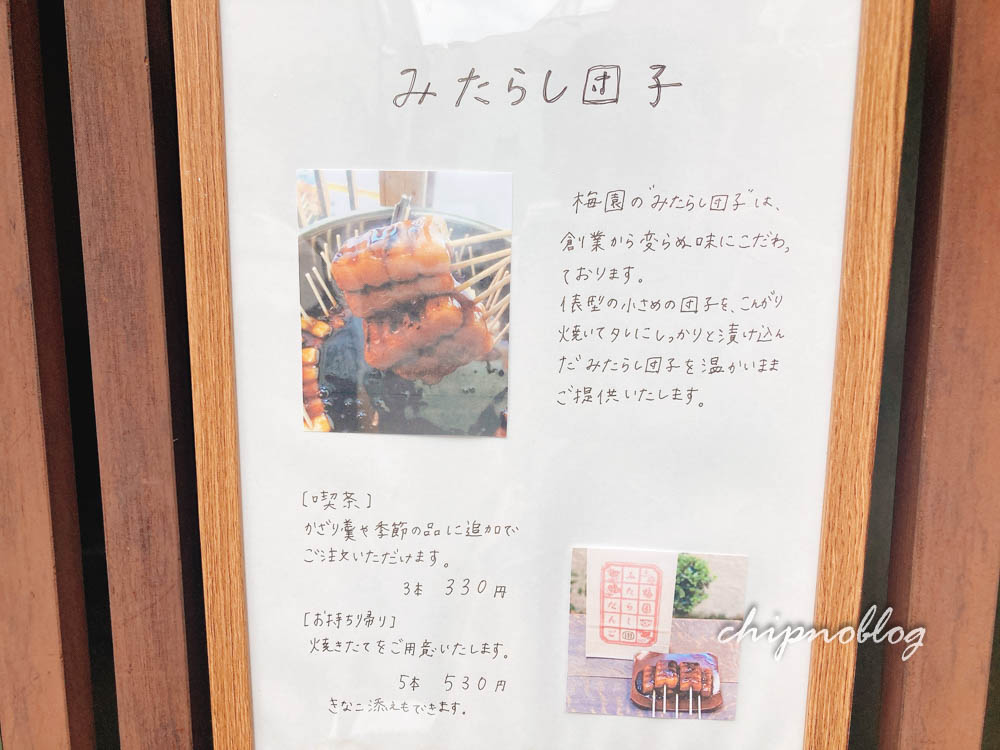 みたらし団子
梅園の"みたらし団子"は、
創業から変らぬ味にこだわっ
ております。
俵型の小さめの団子を、こんがり
焼いてタレにしっかりと漬け込ん
だみたらし団子を温かいまま
ご提供いたします。
[喫茶]
かざり羹や季節の品に追加で
ご注文いただけます。
3本 330円
[お持ち帰り]
焼きたてをご用意いたします。
5本 530円
きなこ添えもできます。
chipnoblog